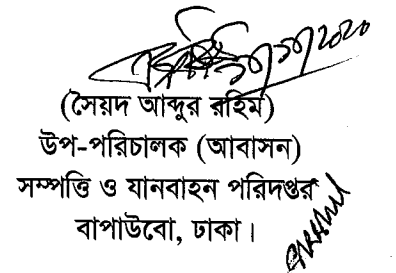 (সৈয়দ আব্দুর রহিম)
উপ-পরিচালক (আবাসন)
সম্পত্তি ও যানবাহন পরিদপ্তর
বাপাউবো, ঢাকা।